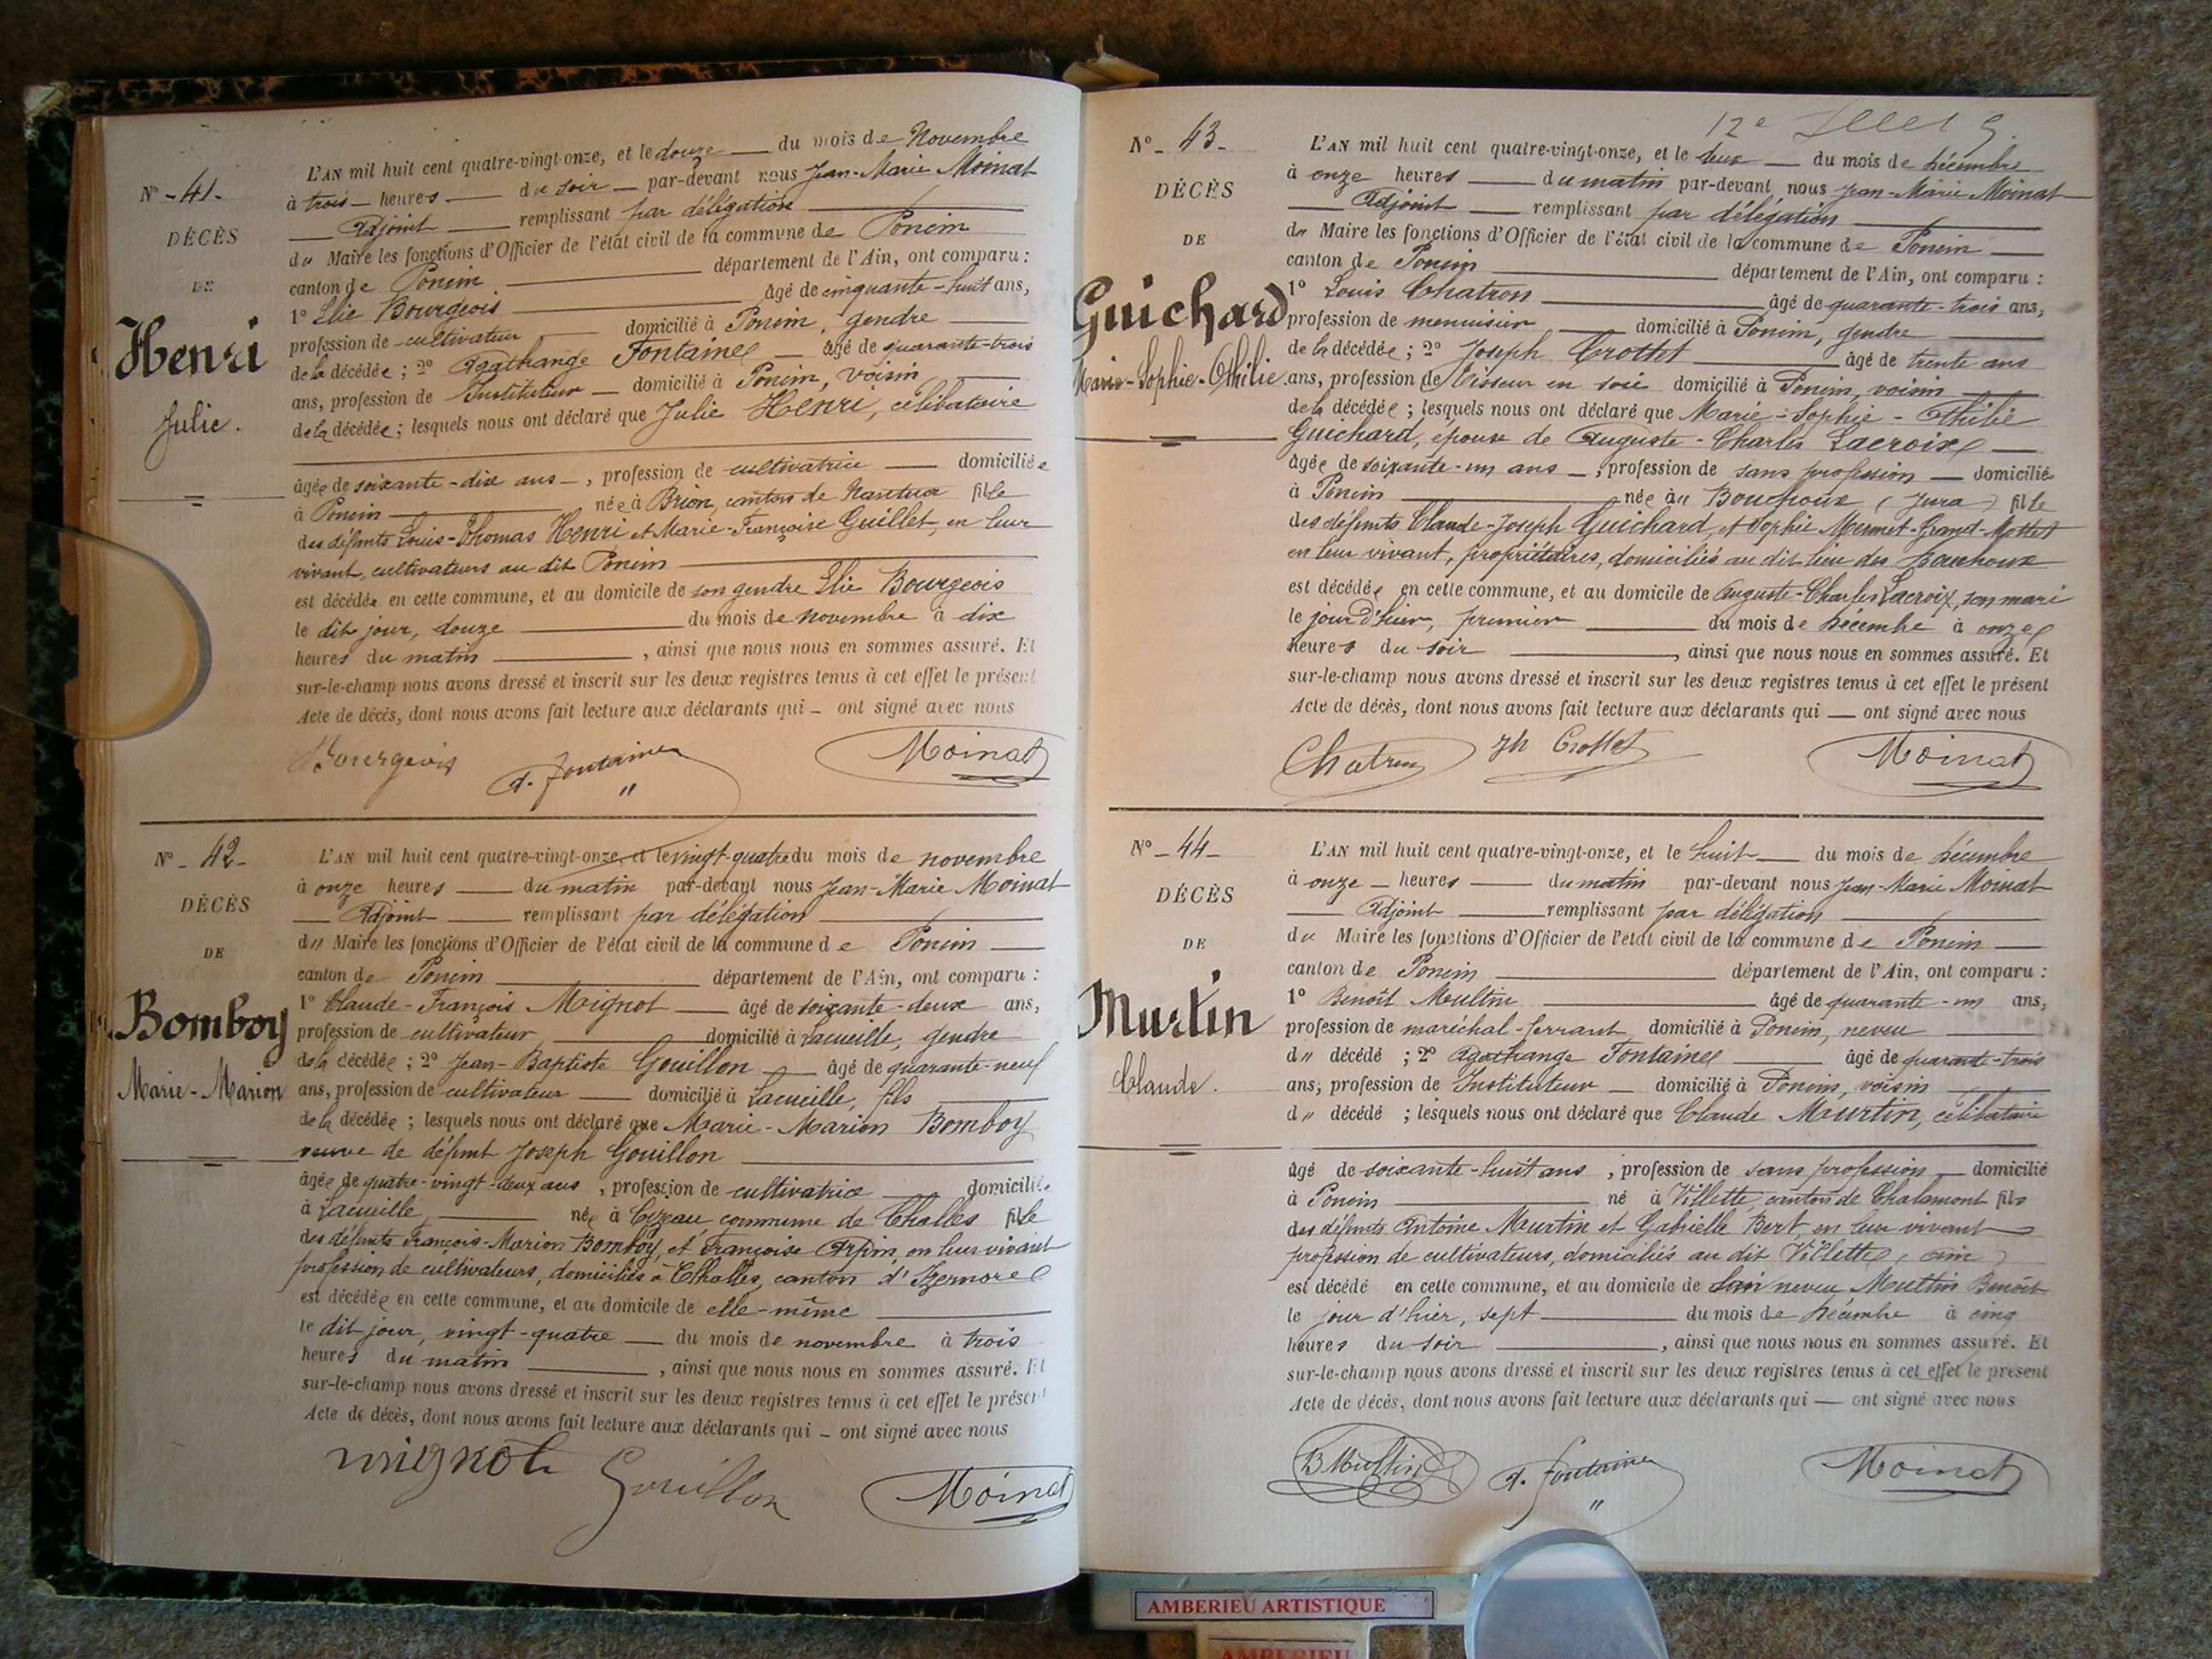 N° - 41 -
DÉCÈS
DE
Henri
Julie.
L'AN mil huit cent quatre-vingt-onze, et le douze du mois de Novembre
à trois heures du soir par-devant nous Jean-Marie Moinat
Adjoint remplissant par délégation
du Maire les fonctions d'Officier de l'état civil de la commune de Poncin
canton de Poncin département de l'Ain, ont comparu :
1° Elie Bourgeois âgé de cinquante-huit ans,
profession de cultivateur domicilié à Poncin, gendre
de la décédée ; 2° Agathange Fontaine âgé de quarante-trois
ans, profession de Instituteur domicilié à Poncin, voisin
de la décédée ; lesquels nous ont déclaré que Julie Henri, célibataire
âgée de soixante-dix ans, profession de cultivatrice domiciliée
à Poncin née à Brion, canton de Nantua fille
des défunts Louis-Thomas Henri et Marie-Françoise Guillet, en leur
vivant, cultivateurs au dit Poncin
est décédée en cette commune, et au domicile de son gendre Elie Bourgeois
le dit jour, douze du mois de novembre à dix
heures du matin, ainsi que nous nous en sommes assuré. Et
sur-le-champ nous avons dressé et inscrit sur les deux registres tenus à cet effet le présent
Acte de décès, dont nous avons fait lecture aux déclarants qui ont signé avec nous
Bourgeois A. Fontaine Moinat
N° - 42 -
DÉCÈS
DE
Bomboy
Marie-Marion
L'AN mil huit cent quatre-vingt-onze, et le vingt-quatre du mois de novembre
à onze heures du matin par-devant nous Jean-Marie Moinat
Adjoint remplissant par délégation
du Maire les fonctions d'Officier de l'état civil de la commune de Poncin
canton de Poncin département de l'Ain, ont comparu :
1° Claude-François Mignot âgé de soixante-deux ans,
profession de cultivateur domicilié à Lacueille, gendre
de la décédée ; 2° Jean-Baptiste Gouillon âgé de quarante-neuf
ans, profession de cultivateur domicilié à Lacueille, fils
de la décédée ; lesquels nous ont déclaré que Marie-Marion Bomboy
veuve de défunt Joseph Gouillon
âgée de quatre-vingt-deux ans, profession de cultivatrice domiciliée
à Lacueille née à Cizeau commune de Challes fille
des défunts François-Marion Bomboy, et Françoise Arpin en leur vivant
profession de cultivateurs, domiciliés à Challes, canton d'Izernore
est décédée en cette commune, et au domicile de elle-même
le dit jour, vingt-quatre du mois de novembre à trois
heures du matin, ainsi que nous nous en sommes assuré. Et
sur-le-champ nous avons dressé et inscrit sur les deux registres tenus à cet effet le présent
Acte de décès, dont nous avons fait lecture aux déclarants qui ont signé avec nous
mignot Gouillon Moinat
12e
N° - 43 -
DÉCÈS
DE
Guichard
Marie-Sophie-Othilie
L'AN mil huit cent quatre-vingt-onze, et le deux du mois de décembre
à onze heures du matin par-devant nous Jean-Marie Moinat
Adjoint remplissant par délégation
du Maire les fonctions d'Officier de l'état civil de la commune de Poncin
canton de Poncin département de l'Ain, ont comparu :
1° Louis Chatron âgé de quarante-trois ans,
profession de menuisier domicilié à Poncin, gendre
de la décédée ; 2° Joseph Crottet âgé de trente ans
ans, profession de tisseur en soie domicilié à Poncin, voisin
de la décédée ; lesquels nous ont déclaré que Marie-Sophie-Othilie
Guichard, épouse de Auguste-Charles Lacroix
âgée de soixante-un ans, profession de sans profession domicilié
à Poncin née au Bouchoux (Jura) fille
des défunts Claude-Joseph Guichard, et Sophie Mermet-Grand-Mottet
en leur vivant, propriétaires, domiciliés au dit lieu des Bouchoux
est décédée en cette commune, et au domicile de Auguste-Charles Lacroix, son mari
le jour d'hier, premier du mois de décembre à onze
heures du soir, ainsi que nous nous en sommes assuré. Et
sur-le-champ nous avons dressé et inscrit sur les deux registres tenus à cet effet le présent
Acte de décès, dont nous avons fait lecture aux déclarants qui ont signé avec nous
Chatron Jh Crottet Moinat
N° - 44 -
DÉCÈS
DE
Murtin
Claude.
L'AN mil huit cent quatre-vingt-onze, et le huit du mois de décembre
à onze heures du matin par-devant nous Jean-Marie Moinat
Adjoint remplissant par délégation
du Maire les fonctions d'Officier de l'état civil de la commune de Poncin
canton de Poncin département de l'Ain, ont comparu :
1° Benoît Meultin âgé de quarante-un ans,
profession de maréchal-ferrant domicilié à Poncin, neveu
du décédé ; 2° Agathange Fontaine âgé de quarante-trois
ans, profession de Instituteur domicilié à Poncin, voisin
du décédé ; lesquels nous ont déclaré que Claude Meurtin, célibataire
âgé de soixante-huit ans, profession de sans profession domicilié
à Poncin né à Villette, canton de Chalamont fils
des défunts Antoine Meurtin et Gabrielle Bert, en leur vivant
profession de cultivateurs, domiciliés au dit Villette, ain
est décédé en cette commune, et au domicile de son neveu Meultin Benoît
le jour d'hier, sept du mois de décembre à cinq
heures du soir, ainsi que nous nous en sommes assuré. Et
sur-le-champ nous avons dressé et inscrit sur les deux registres tenus à cet effet le présent
Acte de décès, dont nous avons fait lecture aux déclarants qui ont signé avec nous
B Multin A. Fontaine Moinat
AMBERIEU ARTISTIQUE
AMBERIEU